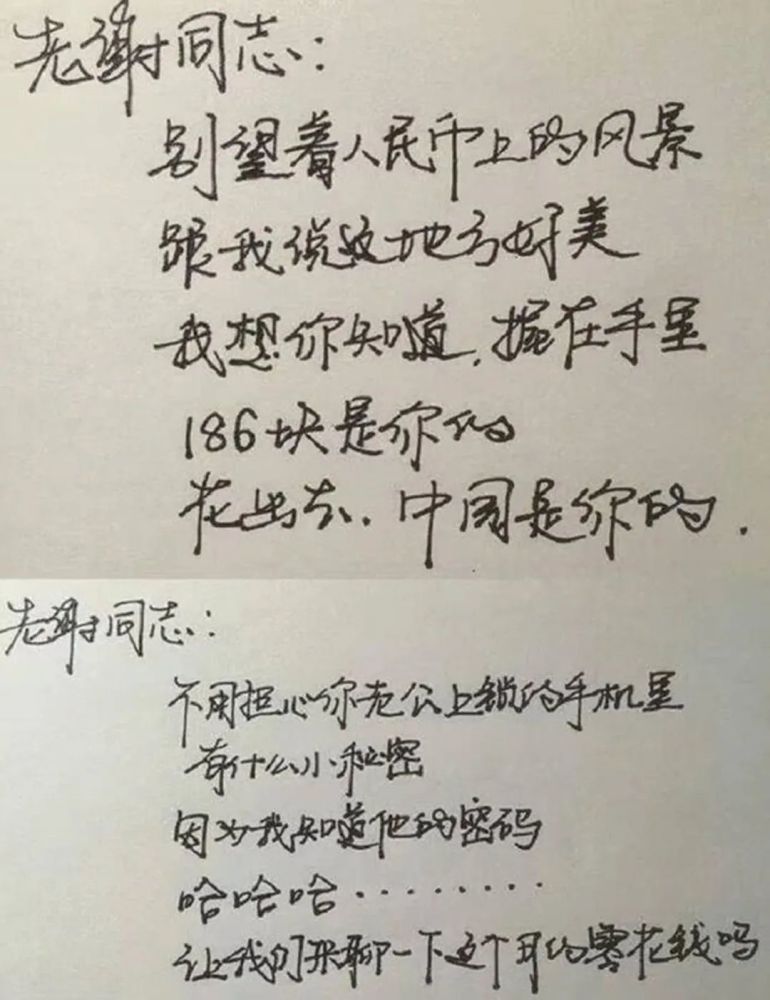 老谢同志：
别望着人民币上的风景
跟我说这地方好美
我想你知道，握在手里
186块是你的
花出去，中国是你的．
老谢同志：
不用担心你老公上锁的手机里
有什么小秘密
因为我知道他的密码
哈哈哈………
让我们来聊一下这个月的零花钱吗